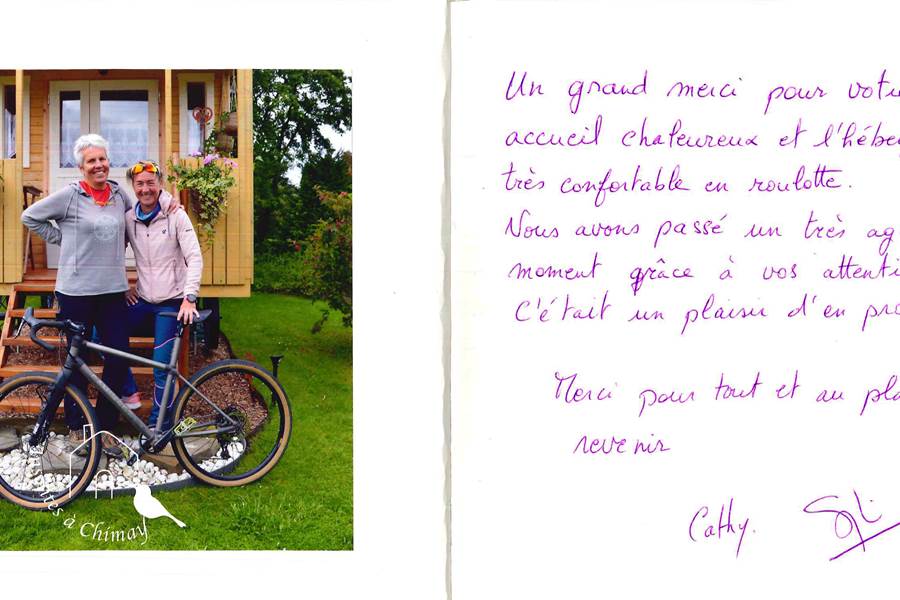 Un grand merci pour votr
accueil chaleureux et l'héber
très confortable en roulotte.
Nous avons passé un très ag
moment grâce à vos attenti
C'était un plaisir d'en pro
Merci pour tout et au pla
revenir
Cathy.
à Chimay